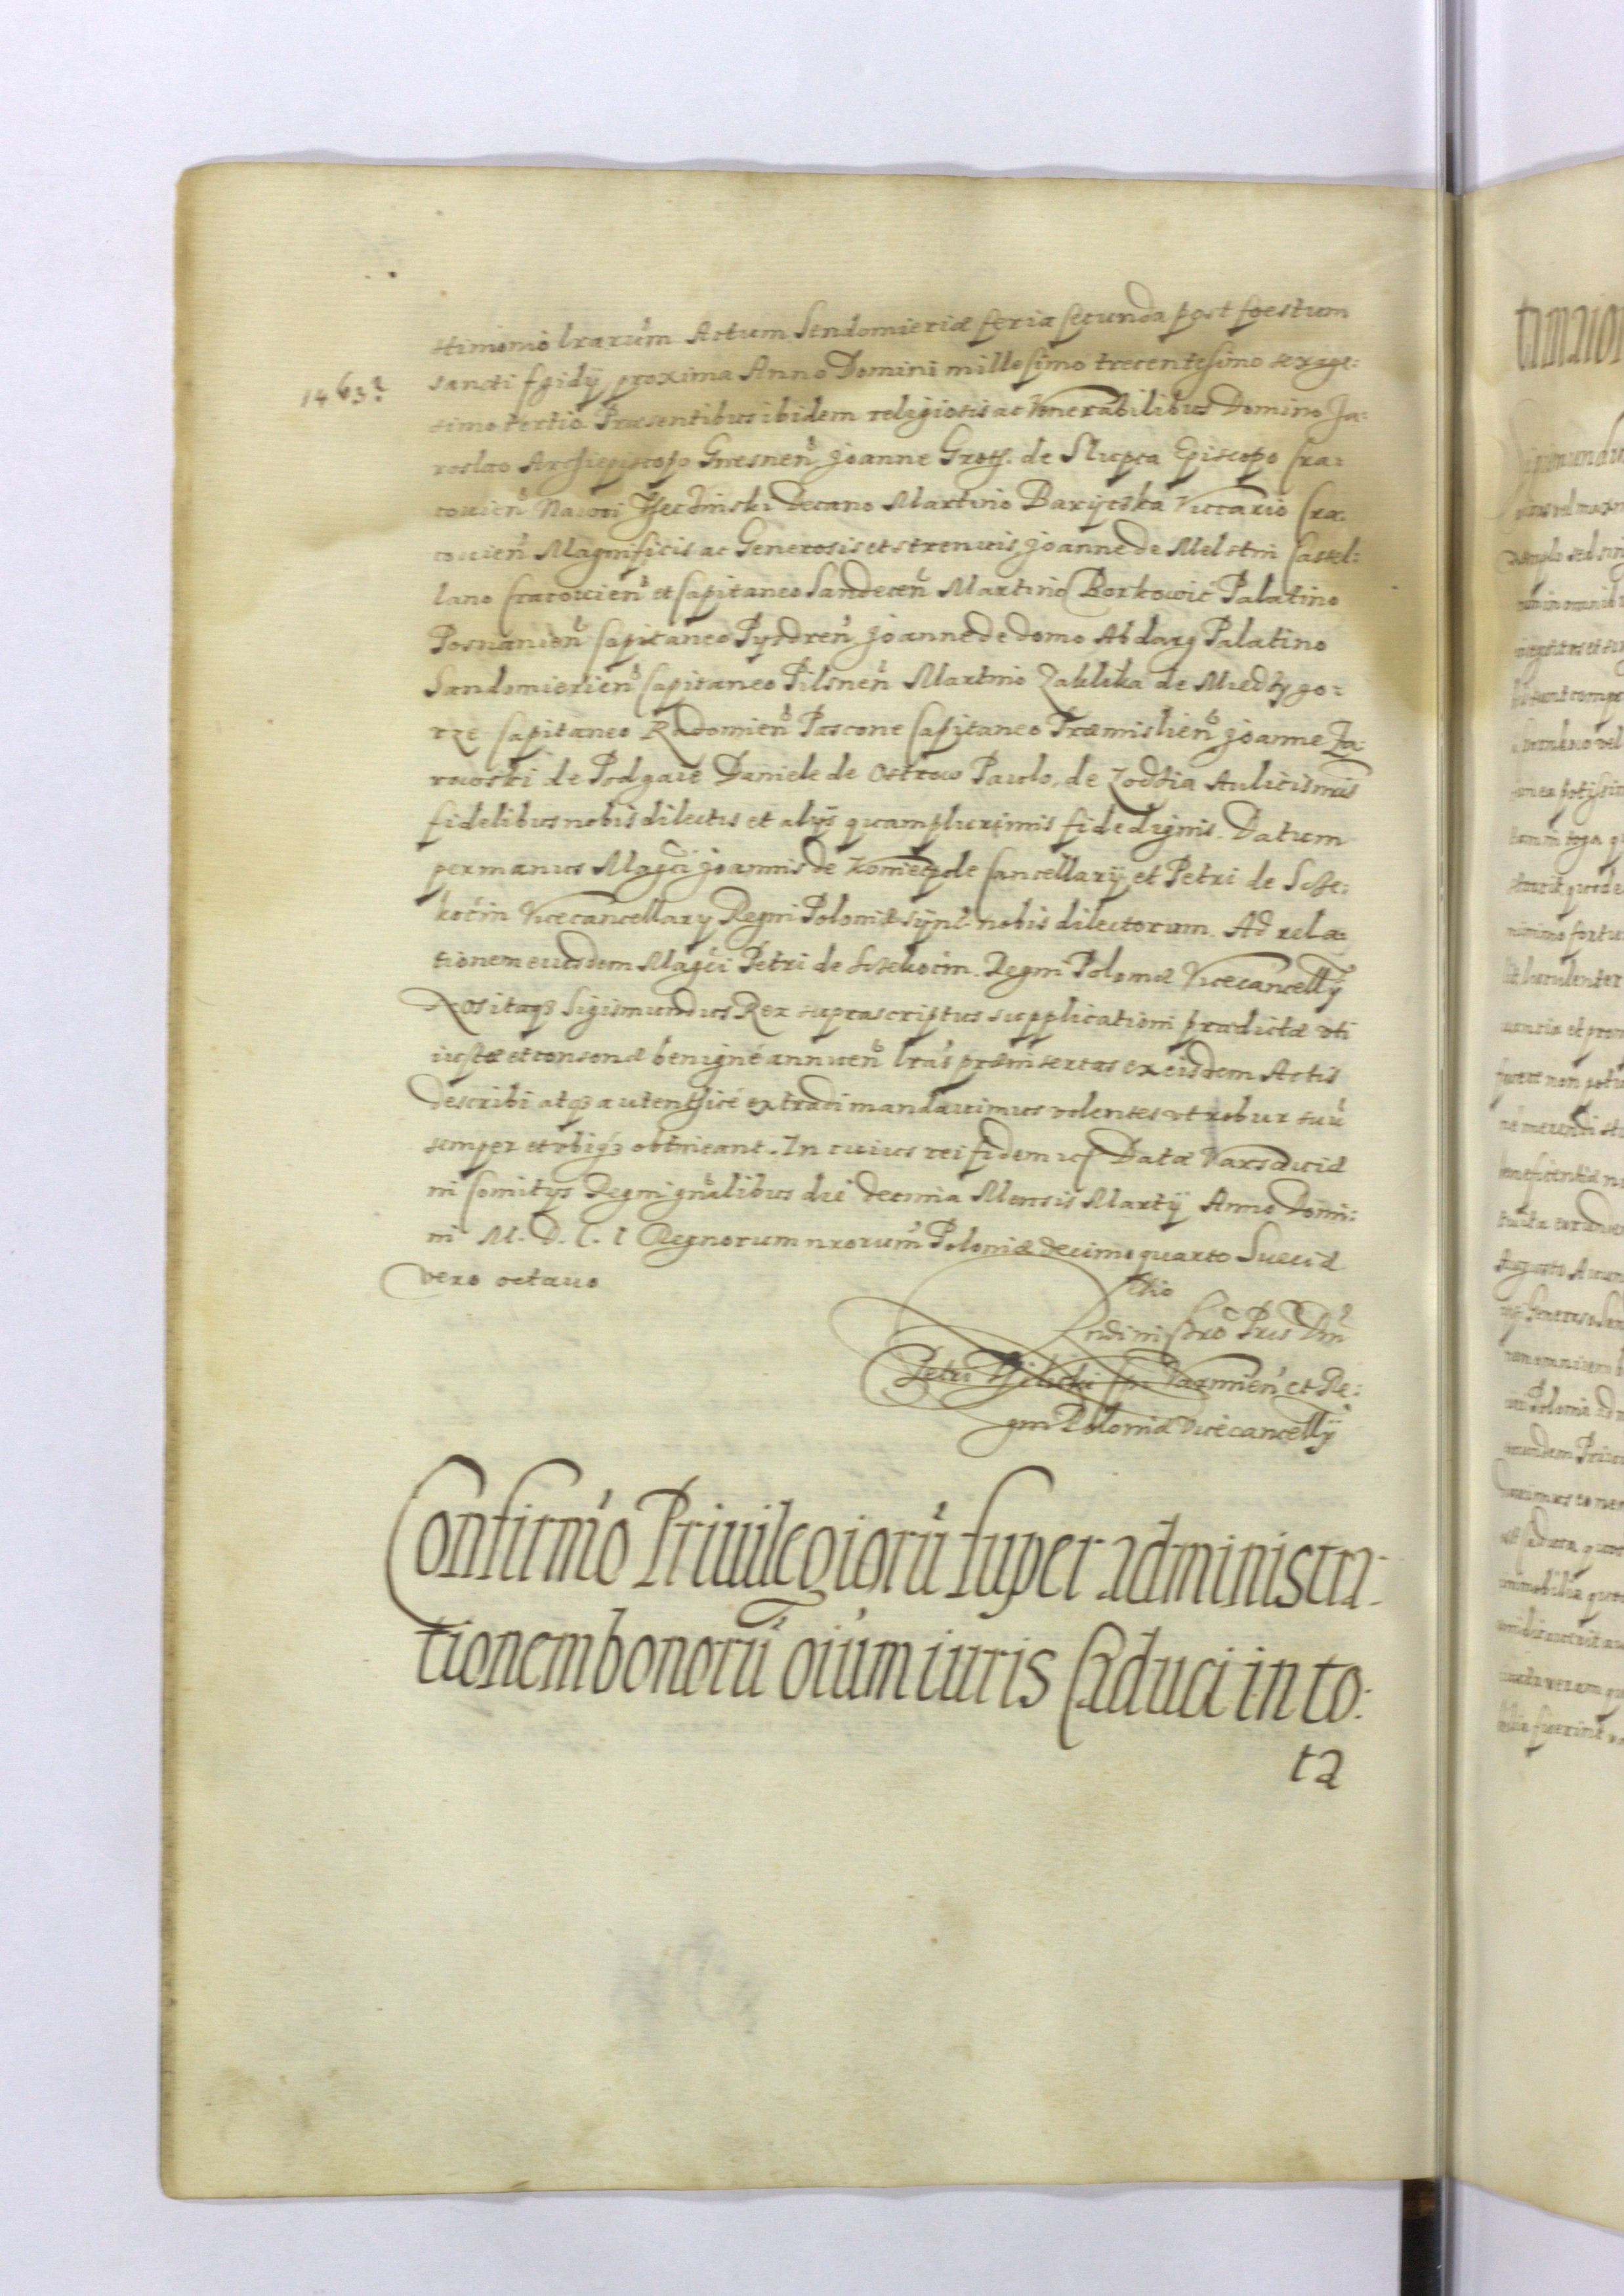 stimonio lrarum̃ Actum Sendomieriæ feria secunda post foestum
1463? sancti Egidij proxima Anno Domini millesimo trecentesimo sexage:
simo tertio. Præsentibus ibidem religiosis ac Venerabilibus Domino Ja:
roslao Archiepiscopo Gnesnen̄ Joanne Groth. de Slupca Episcopo Cra:
couien̄ Decano Martino Baryczka Viccario Cra:
couien̄ Magnificis ac Generosis et strenuis, Joanne de Melstin Castel:
lano Cracouien̄ et Capitaneo Sandecen̄ Martino Borkowic Palatino
Posnanien̄ Capitaneo Pysdren̄ Joanne de domo Abdang Palatino
Sandomierien̄ Capitaneo Pilsnen̄ Martino Zaklika de Miedzygo:
rze Capitaneo Radomien̄ Pascone Capitaneo Præmislien̄ Joanne Ja:
rwoski de Podgaie Daniele de Ostrow Paulo de Zodzia Aulicis nr̄is
fidelibus nobis dilectis et alijs quamplurimis fide dignis. Datum
per manus Magc̄i Joannis de Koniecpole Cancellarij et Petri de Scze:
kocin Vicecancellary Regni Poloniæ synl. nobis dilectorum. Ad rela:
tionem eiusdem Magc̄i Petri de Sczekocin. Regni Poloniæ Vicecancellȳ
Nos itaqȝ Sigismundus Rex suprascriptus supplicationi prædictæ vti
iustæ et consonæ benigné annuen̄ lrās præinsertas ex eisdem Actis
describi atqȝ autenthicé extradi mandauimus volentes vt robur suū
semper et vbiqȝ obtineant. In cuius rei fidem Datæ Varsauiæ
in Comitijs Regni gn̄alibus die decima Mensis Martij Anno Domi:
ni M. D. C. I Regnorum nrorum̃ Poloniæ decimo quarto Sueciæ
vero octauo
Petri Tylicki Epi Varmien̄ et Re:
gni Poloniæ Vicecancellȳ
Confirmo Priuilegiorū super administra:
tionem bonorū oīum iuris Caduci in to:
ta